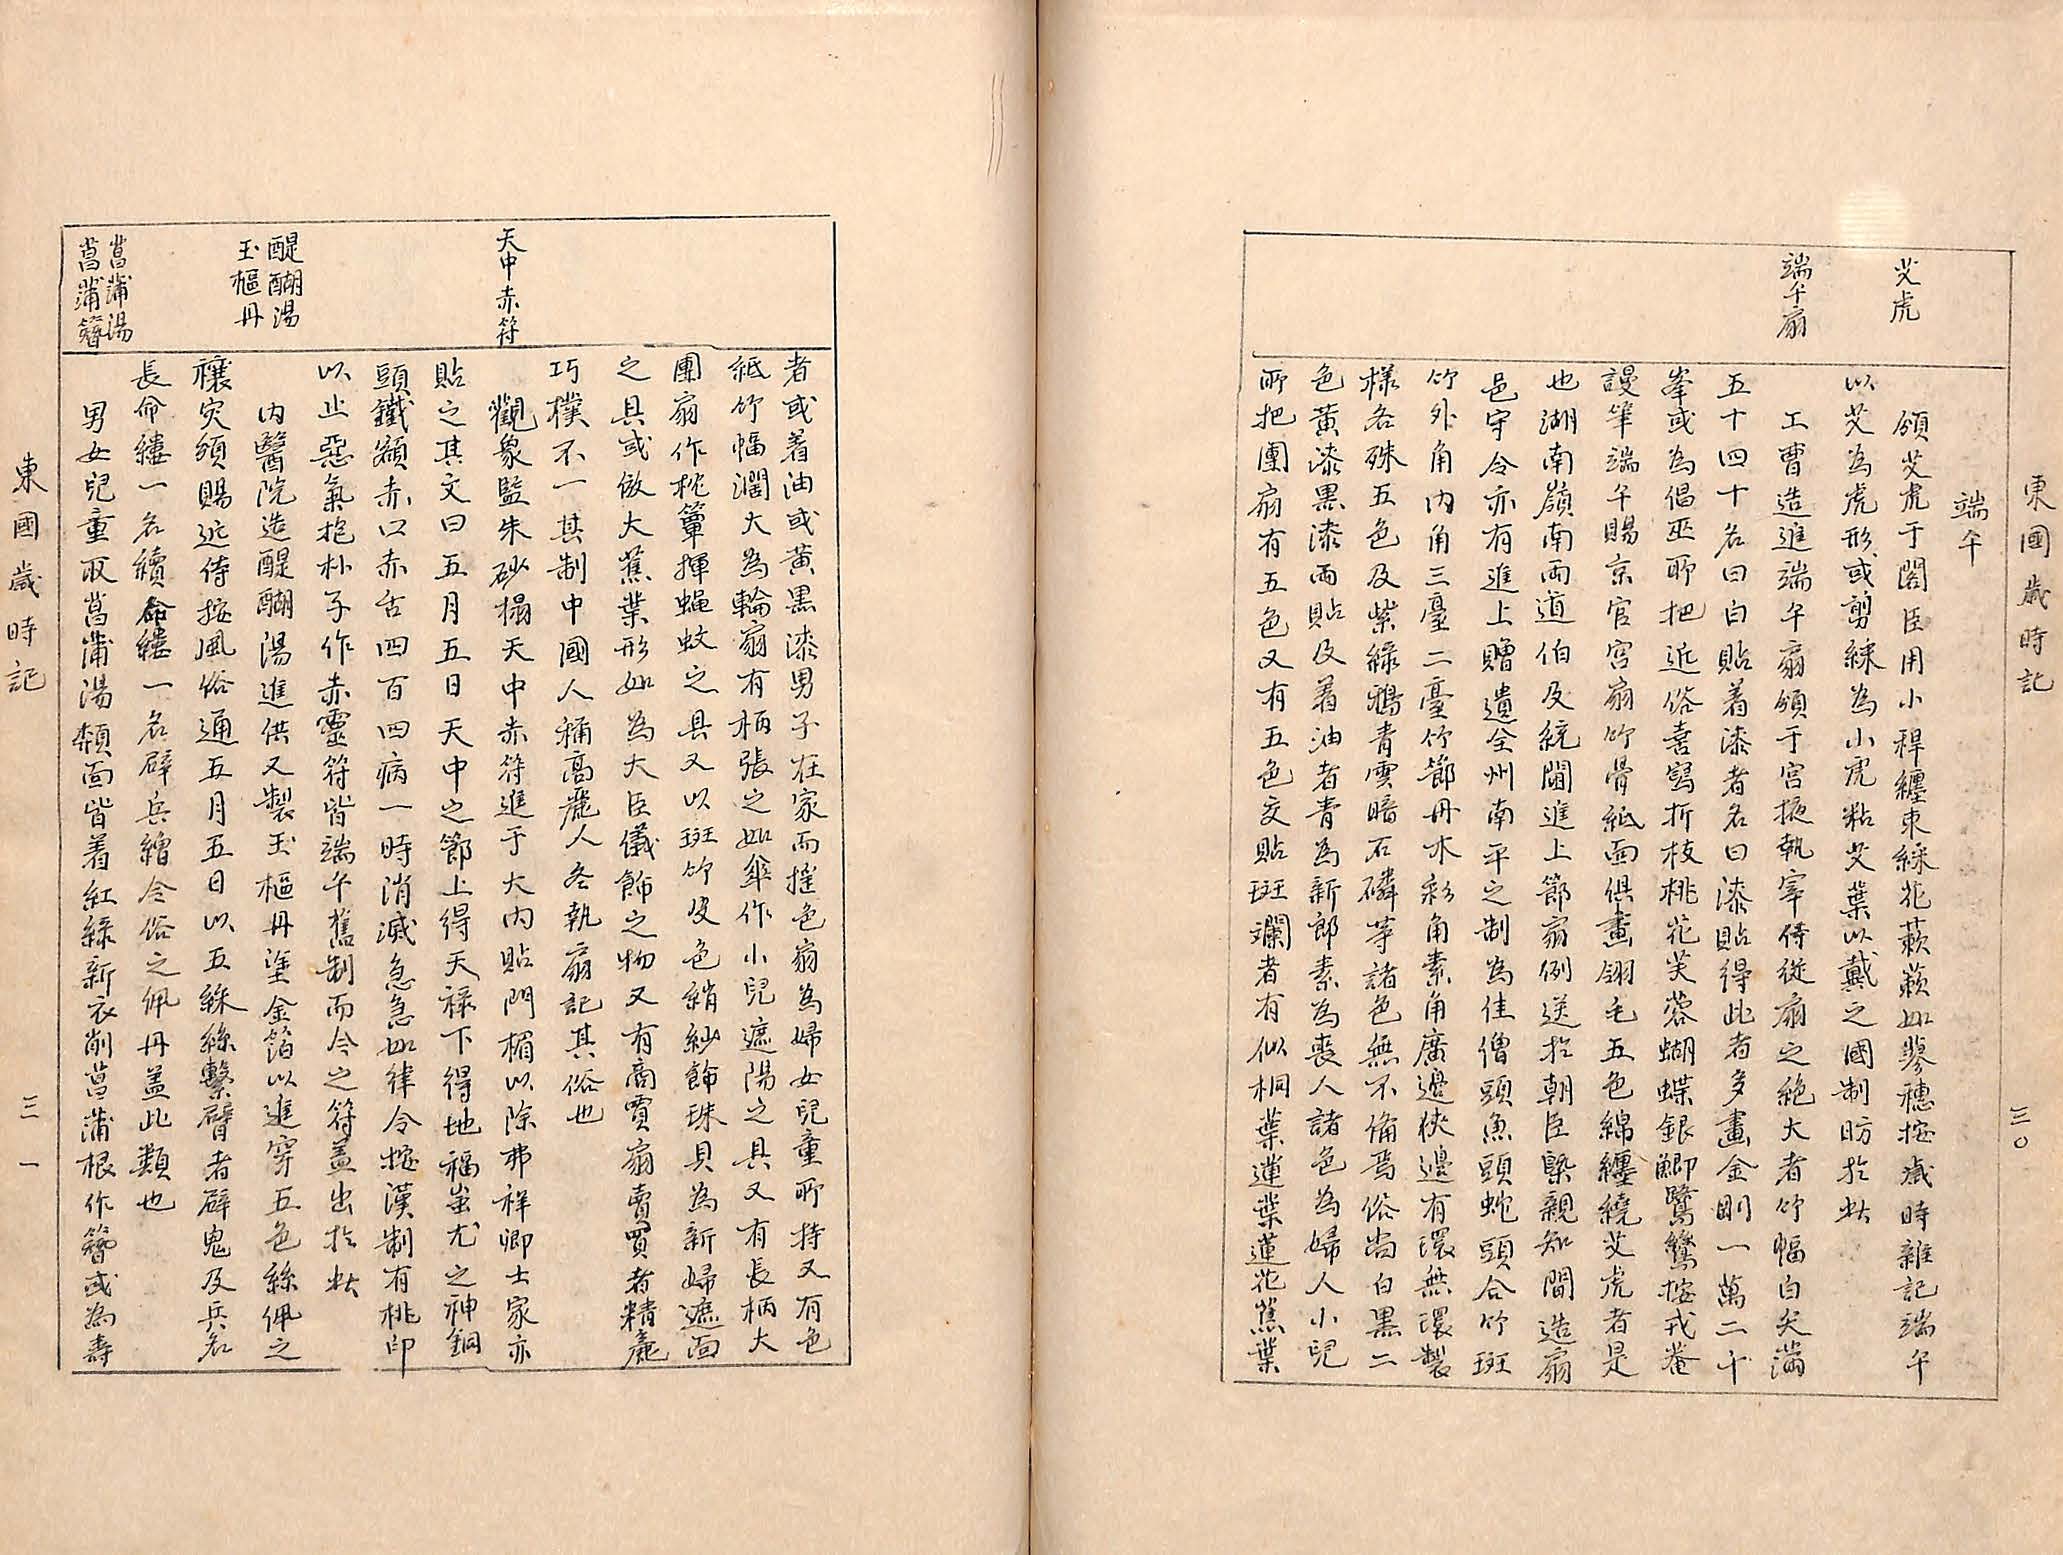 東國歲時記
三〇
艾虎
端午扇
端午
頒艾虎于閣臣用小稈纏束綵花蔌蔌如蓼穗按歲時雜記端午
以艾為虎形或剪綵為小虎粘艾葉以戴之國制昉於此
工曹造進端午扇頒于宮掖執宰侍從扇之絶大者竹幅白矢滿
五十四十名曰白貼着漆者名曰漆貼得此者多畫金剛一萬二千
峯或為倡巫所把近俗喜寫折枝桃花芙蓉蝴蝶銀鯽鷺鷥按戎菴
謾筆端午賜京官宮扇竹骨紙面俱畫翎毛五色綿纏繞艾虎者是
也湖南嶺南兩道伯及統閫進上節扇例送於朝臣曁親知間造扇
邑守令亦有進上贈遺全州南平之制為佳僧頭魚頭蛇頭合竹斑
竹外角內角三臺二臺竹節丹木彩角素角廣邊狹邊有環無環製
樣各殊五色及紫綠鴉青雲暗石磷等諸色無不備焉俗尚白黑二
色黃漆黑漆兩貼及着油者青為新郎素為喪人諸色為婦人小兒
所把團扇有五色又有五色交貼斑斕者有似桐葉蓮葉蓮花蕉葉
者或着油或黃黑漆男子在家而搖色扇為婦女兒童所持又有色
紙竹幅濶大為輪扇有柄張之如傘作小兒遮陽之具又有長柄大
團扇作枕簟揮蝇蚊之具又以斑竹皮色綃紗飾珠貝為新婦遮面
之具或倣大蕉葉形如為大臣儀飾之物又有商賈扇賣買者精麁
巧樸不一其制中國人稱高麗人冬執扇記其俗也
天中赤符
觀象監朱砂榻天中赤符進于大內貼門楣以除弗祥卿士家亦
貼之其文曰五月五日天中之節上得天祿下得地福蚩尤之神銅
頭鐵額赤口赤舌四百四病一時消滅急急如律令按漢制有桃印
以止惡氣抱朴子作赤靈符皆端午舊制而今之符盖出於此
醍醐湯
玉樞丹
內醫院造醍醐湯進供又製玉樞丹塗金箔以進穿五色絲佩之
禳灾頒賜近侍按風俗通五月五日以五綵絲繫臂者辟鬼及兵名
長命縷一名續命縷一名辟兵繒今俗之佩丹盖此類也
菖蒲湯
菖蒲簪
男女兒童取菖蒲湯頮面皆着紅綠新衣削菖蒲根作簪或為壽
東國歲時記
三一